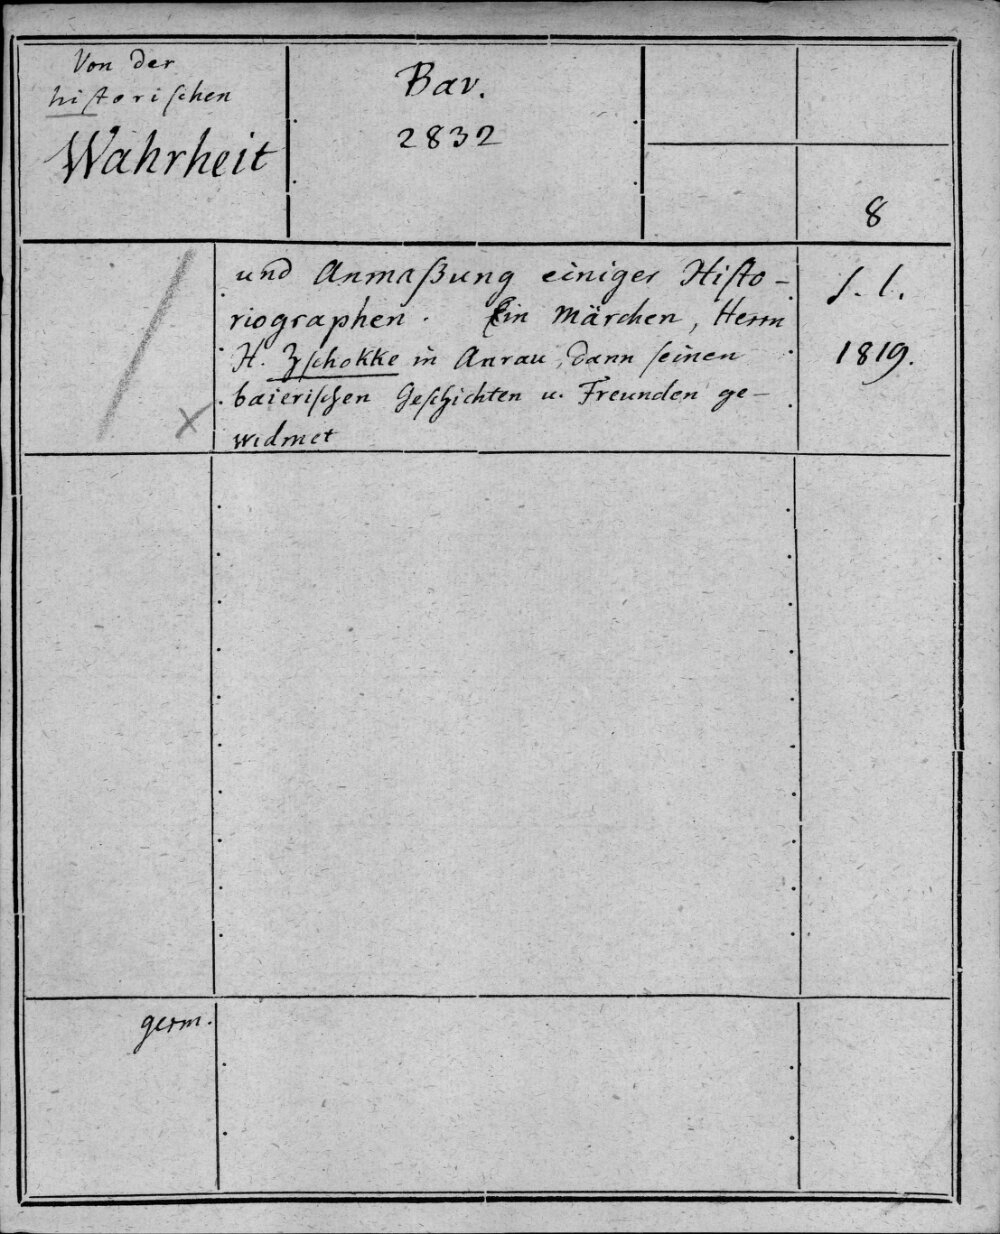 Von der
historischen
Wahrheit
Bav.
2832
8
und Anmaßung einiger Histo-
riographen. Ein Märchen, Herrn
H. Zschokke in Anrau, dann seinen
baierischen Geschichten u. Freunden ge-
widmet
s. l.
1819.
x
germ.